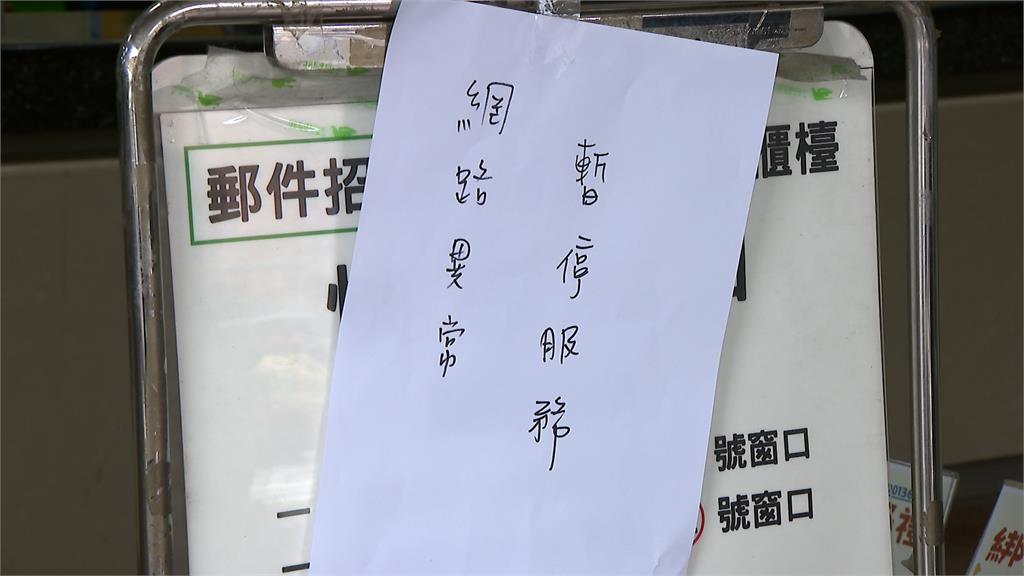 網路異常
暫停服務
郵件招
櫃檯
號窗口
號窗口